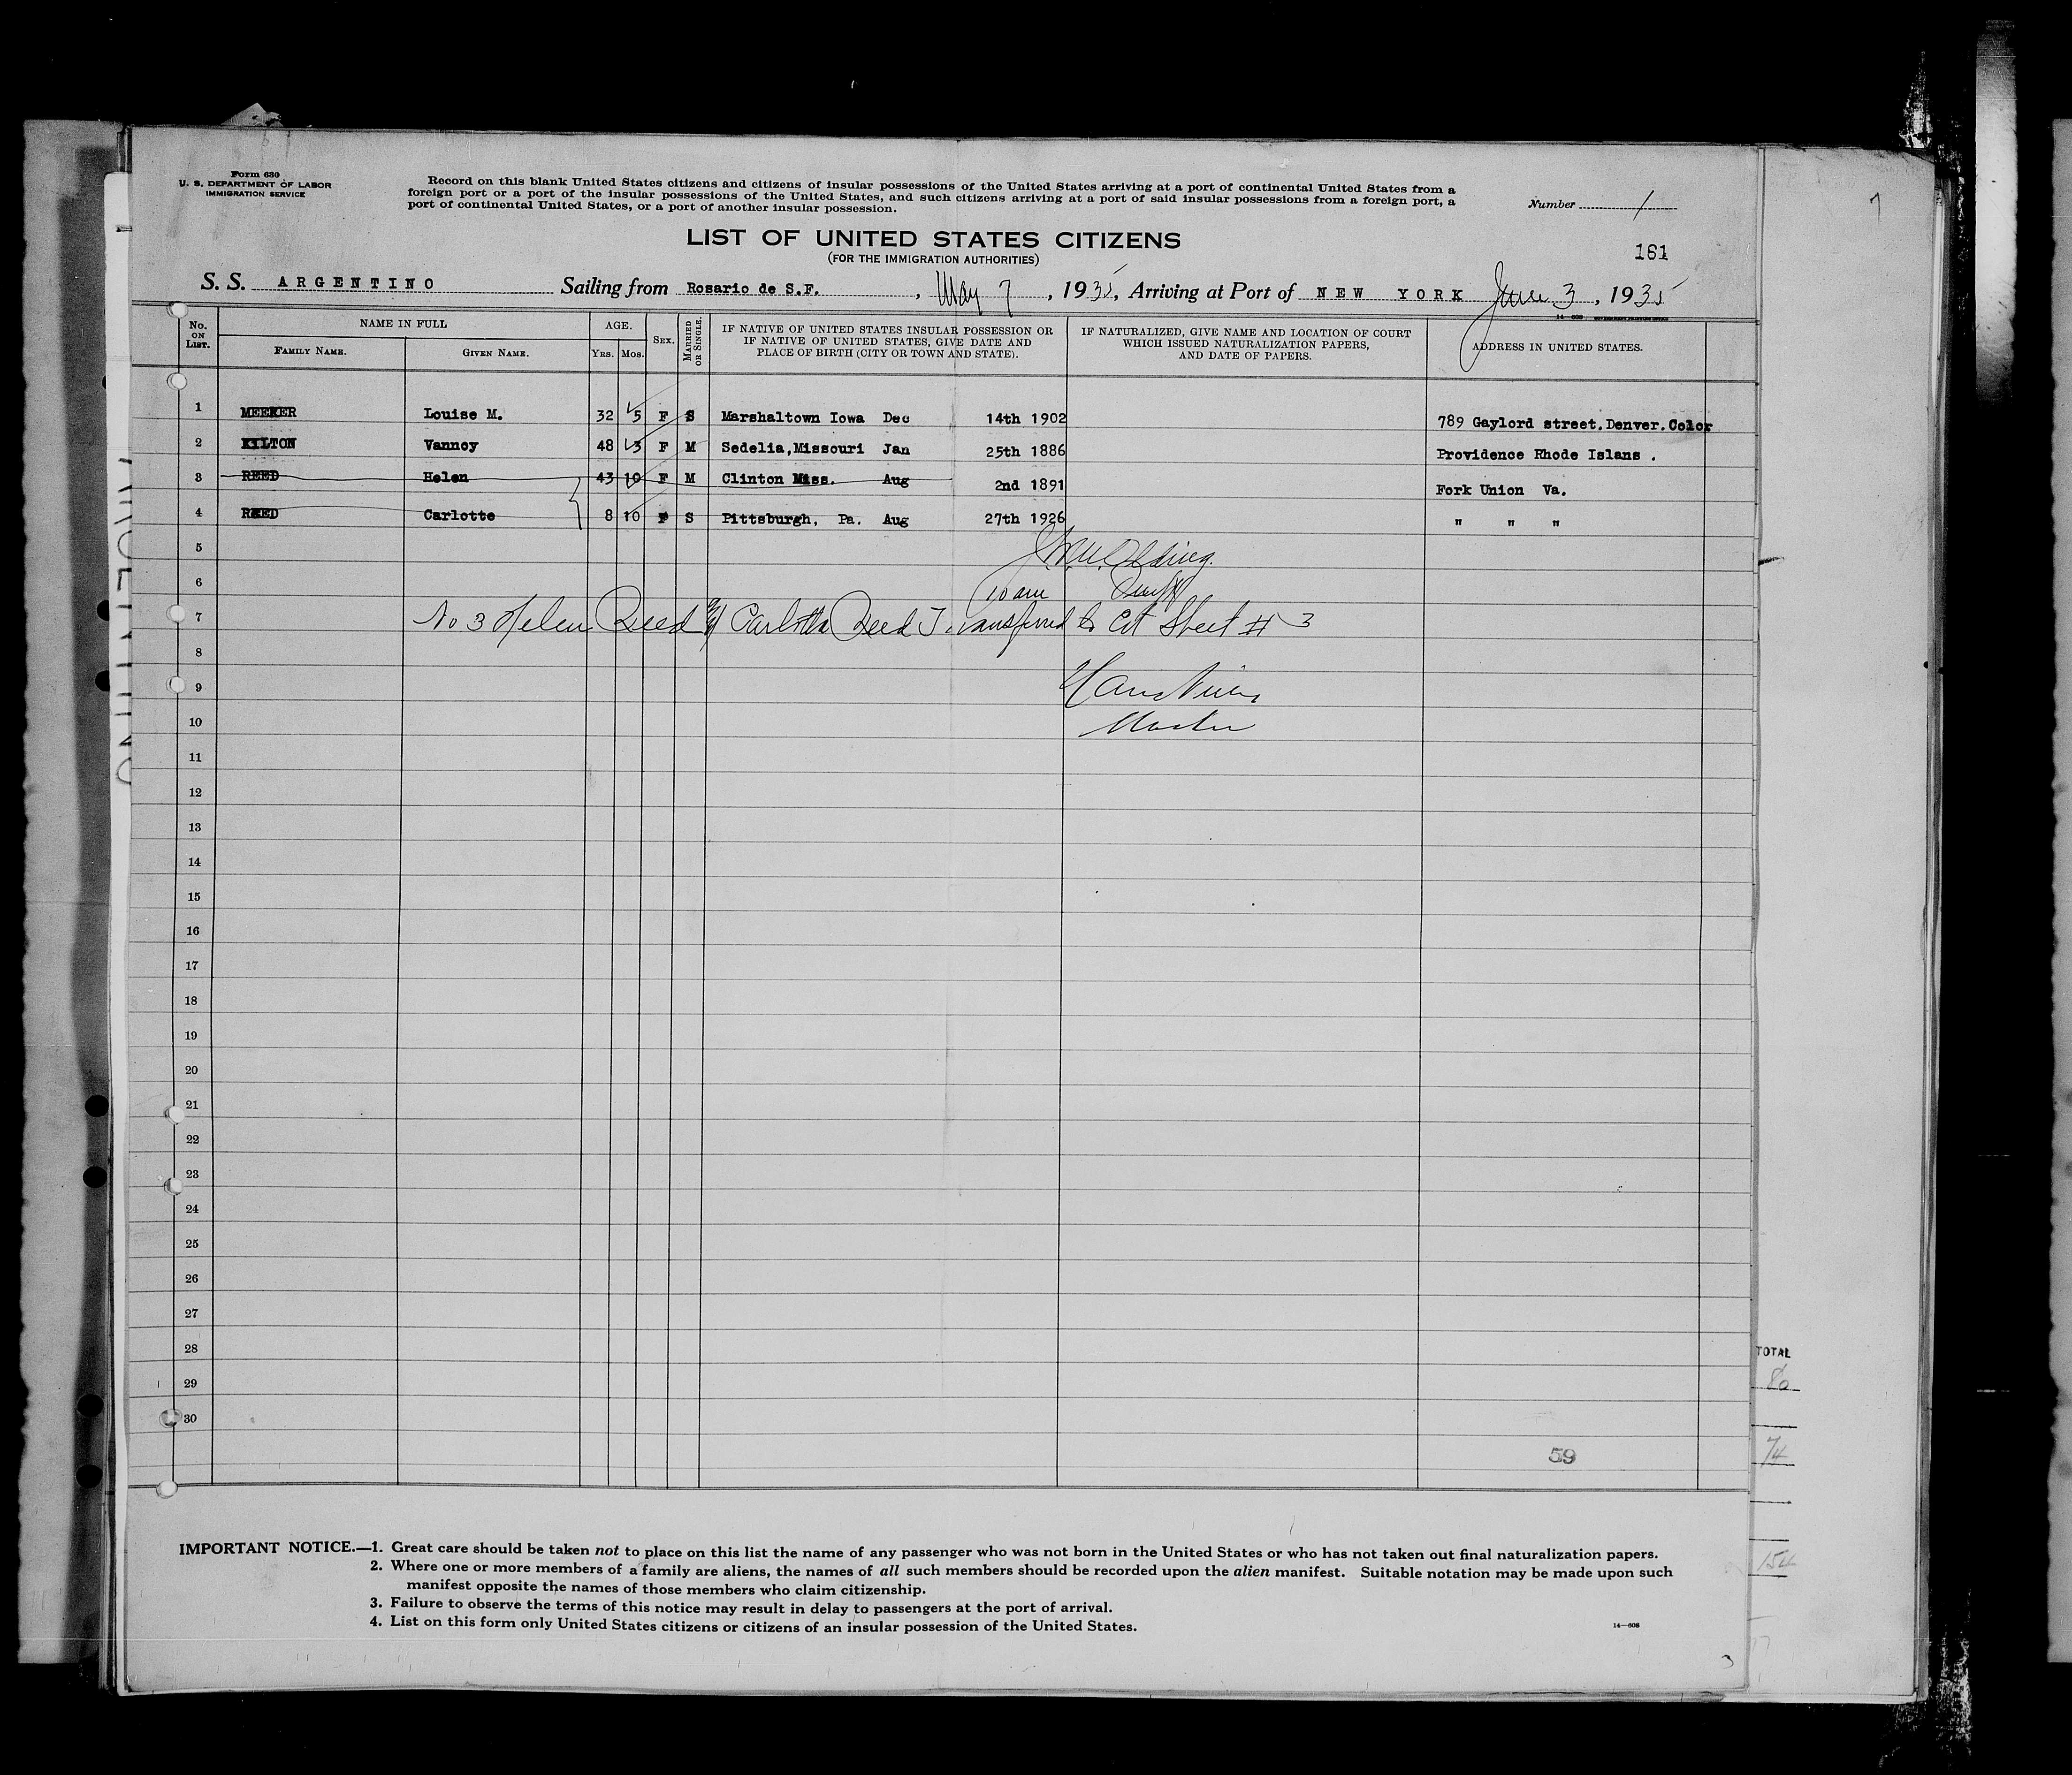 Form 630
U. S. DEPARTMENT OF LABOR
IMMIGRATION SERVICE
Record on this blank United States citizens and citizens of insular possessions of the United States arriving at a port of continental United States from a
foreign port or a port of the insular possessions of the United States, and such citizens arriving at a port of said insular possessions from a foreign port, a
port of continental United States, or a port of another insular possession.
Number 1
LIST OF UNITED STATES CITIZENS
(FOR THE IMMIGRATION AUTHORITIES)
161
S. S. ARGENTINO Sailing from Rosario de S.F. , May 7 , 1935, Arriving at Port of NEW YORK June 3 , 1935
No. ON LIST. NAME IN FULL FAMILY NAME. GIVEN NAME. AGE. YRS. MOS. SEX. MARRIED OR SINGLE. IF NATIVE OF UNITED STATES INSULAR POSSESSION OR IF NATIVE OF UNITED STATES, GIVE DATE AND PLACE OF BIRTH (CITY OR TOWN AND STATE). IF NATURALIZED, GIVE NAME AND LOCATION OF COURT WHICH ISSUED NATURALIZATION PAPERS, AND DATE OF PAPERS. ADDRESS IN UNITED STATES.
1 MEEKER Louise M. 32 5 F S Marshaltown Iowa Dec 14th 1902 789 Gaylord street.Denver.Color
2 KILTON Vannoy 48 3 F M Sedelia,Missouri Jan 25th 1886 Providence Rhode Islans .
3 REED Helen 43 10 F M Clinton Miss. Aug 2nd 1891 Fork Union Va.
4 REED Carlotte 8 10 F S Pittsburgh, Pa. Aug 27th 1926 " " "
5
6 10 am
7 No 3 Helen Reed #4 Carlotta Reed Transferred to Cit Sheet # 3
8
9
10 Master
11
12
13
14
15
16
17
18
19
20
21
22
23
24
25
26
27
28
29
30
59
TOTAL
80
74
154
IMPORTANT NOTICE.—1. Great care should be taken not to place on this list the name of any passenger who was not born in the United States or who has not taken out final naturalization papers.
2. Where one or more members of a family are aliens, the names of all such members should be recorded upon the alien manifest. Suitable notation may be made upon such
manifest opposite the names of those members who claim citizenship.
3. Failure to observe the terms of this notice may result in delay to passengers at the port of arrival.
4. List on this form only United States citizens or citizens of an insular possession of the United States.
14—608